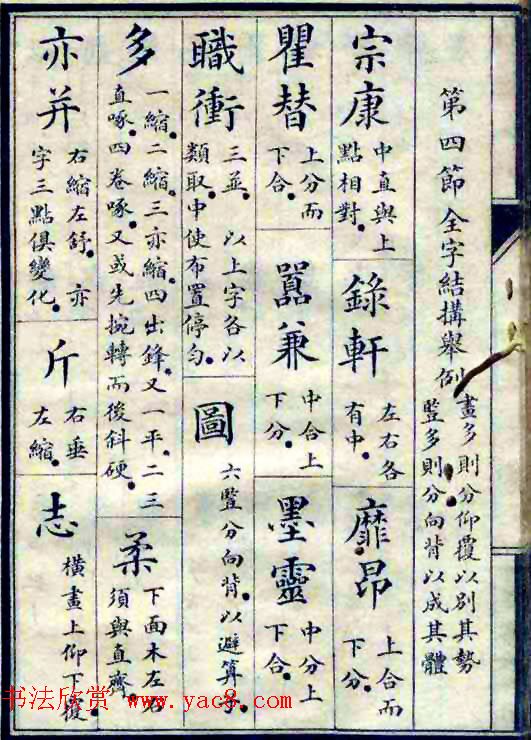 第四節全字結構舉例
畫多則分仰覆以別其勢
豎多則分向背以成其體
宗康
中直與上
點相對。
錄軒
左右各
有中。
靡昂
上合而
下分。
瞿替
上分而
下合。
囂兼
中合上
下分。
墨靈
中分上
下合。
職衝
三並。以上字各以
類取。中使布置停勻。
圖
六豎分向背。以避算子。
多
一縮。二縮。三亦縮。四出鋒。又一平。二三
直啄。四卷啄。又或先捥轉而後斜硬。
柔
下面木左右
須與直齊。
亦并
右縮左舒。亦
字三點俱變化。
斤
右垂
左縮。
志
橫畫上仰下覆。
书法欣赏 www.yac8.com